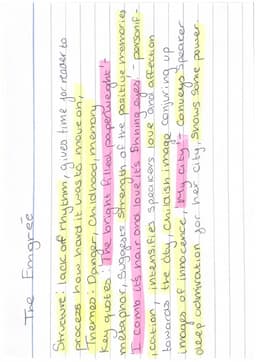 The Emigrée
Structure: Lack of rhythm, gives time for reader to
process how hard it was to move on,
Themes: Danger, Childhood, memory
Key quotes: 'The bright filled paperweight' -
metaphor, suggests strength of the positive memories
'I comb its hair and love its shining eyes' - personif-
ication, intensifies speakers love and affection
towards the city, childish image conjuring up
images of innocence, 'My city' - Conveys speaker
deep admiration for her city. Shows some power